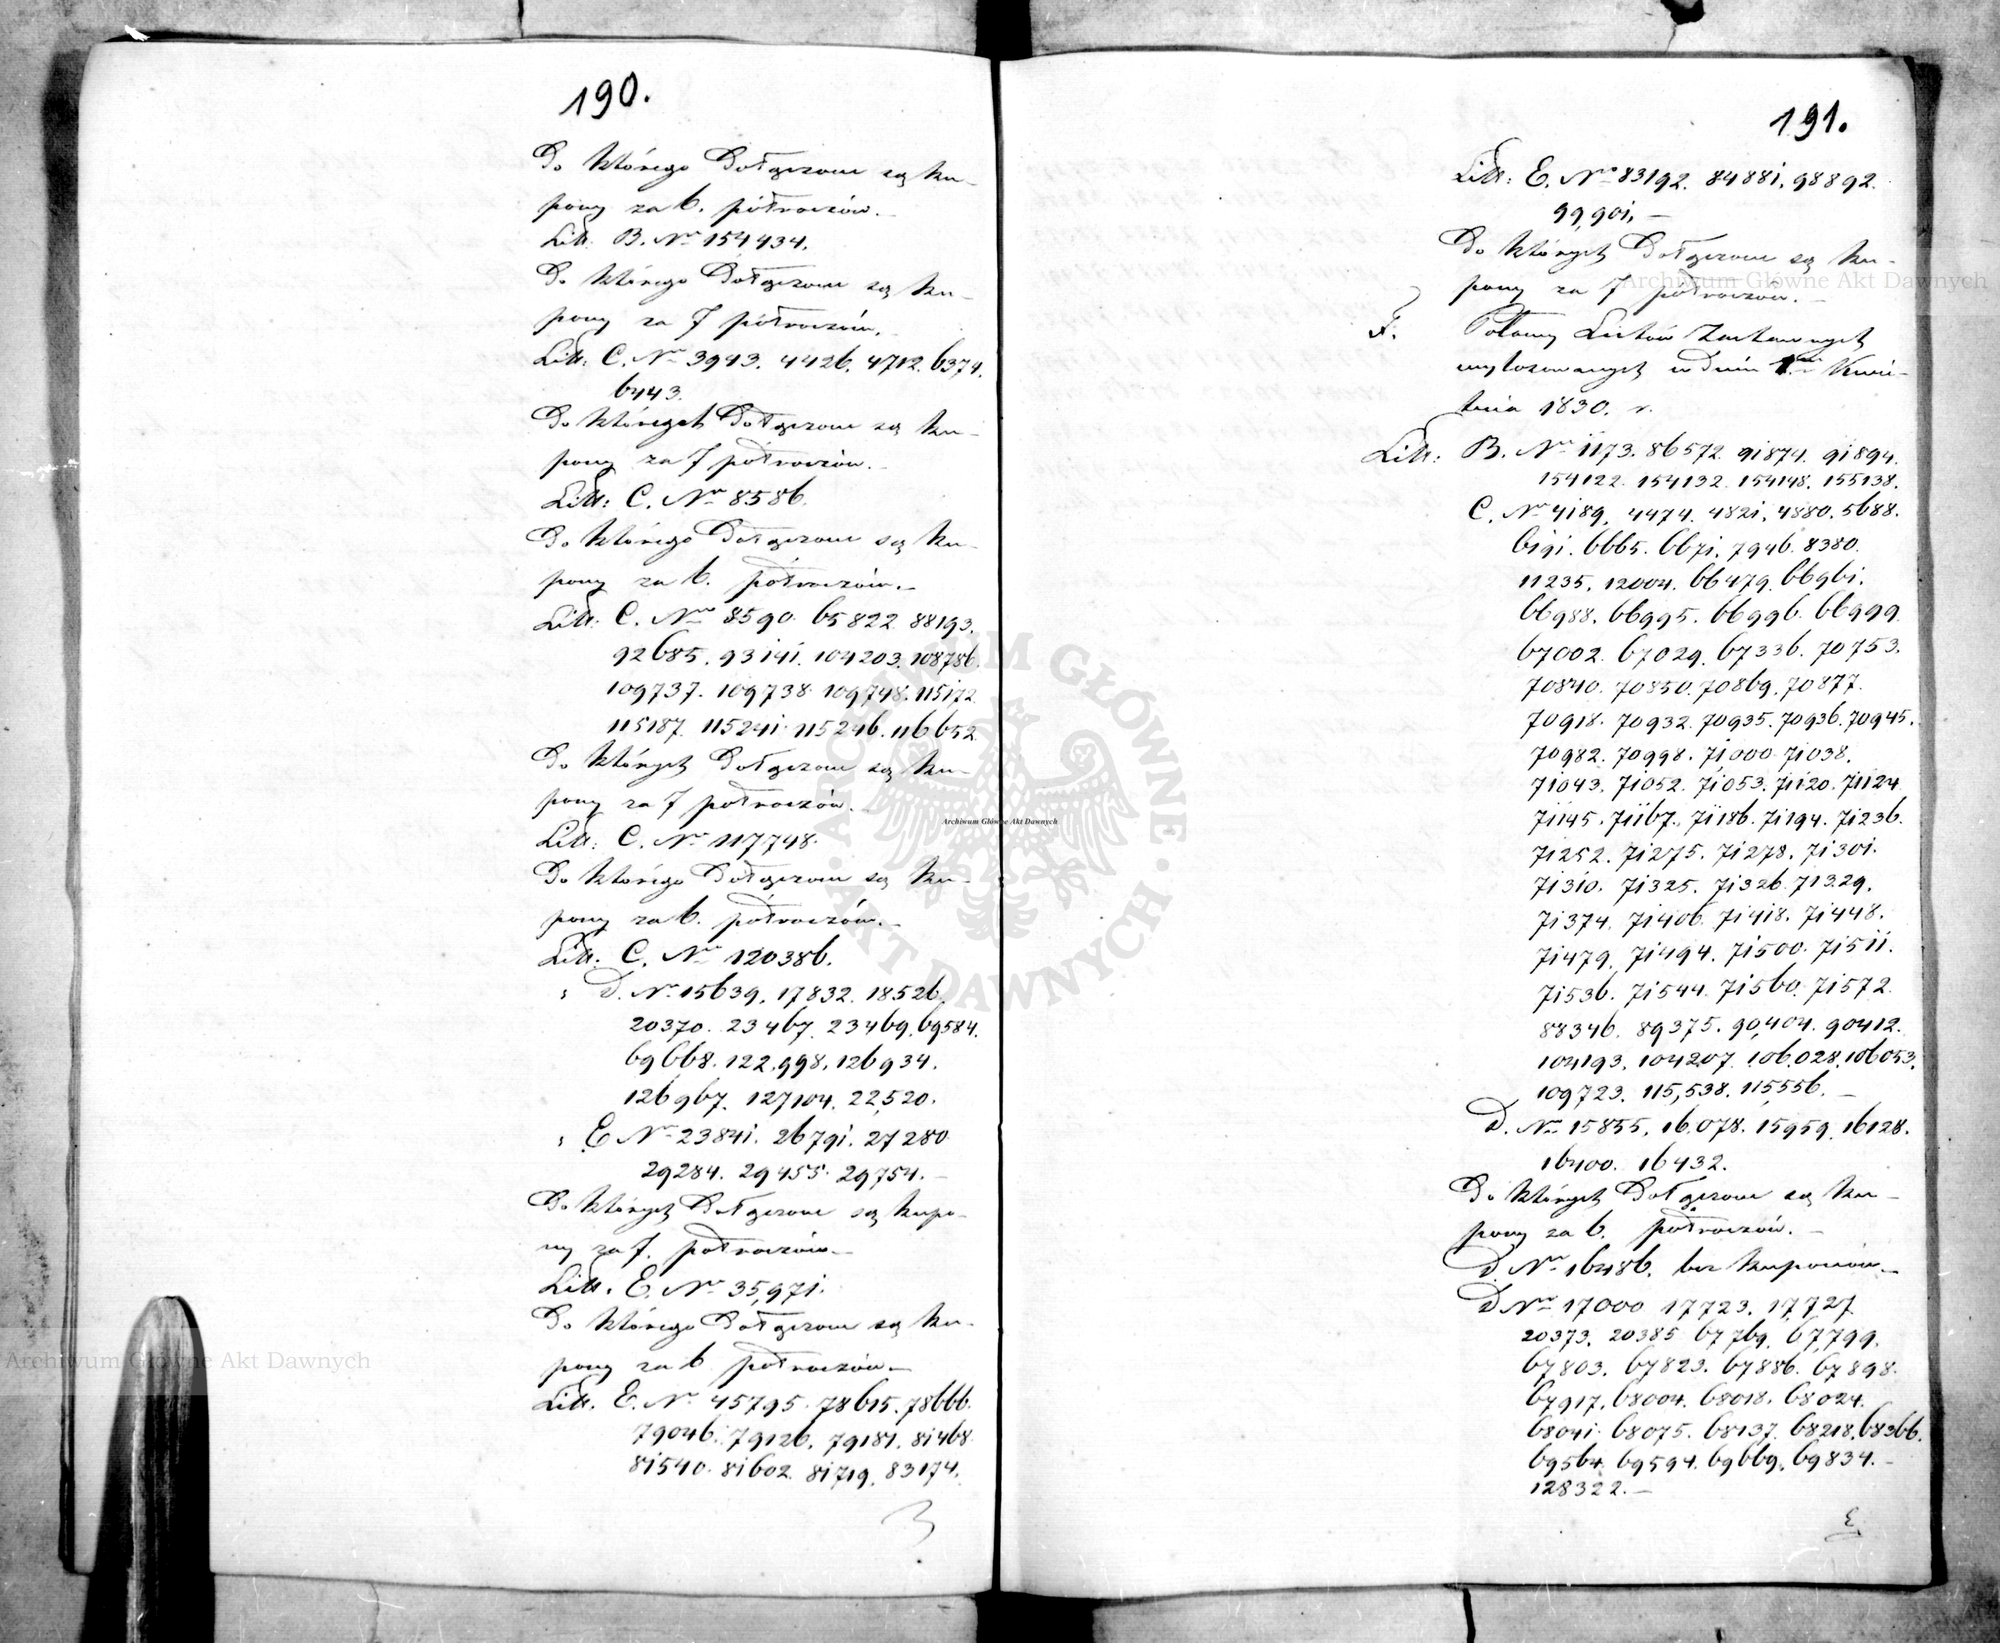 190.
Do którego Dołączone są ku-
pony za 6. półroczów.
Litt: B. Nro 154434.
Do którego Dołączone są ku-
pony za 7 półroczów.
Litt: C. Nro 3943. 4426. 4712. 6374.
6443.
Do których Dołączone są ku-
pony za 7 półroczów.
Litt: C. Nro 8586.
Do którego Dołączone są ku-
pony za 6. półroczów.
Litt: C. Nro 8590. 65822. 88193.
92685. 93141. 104203. 108786.
109737. 109738. 109748. 115172.
115187. 115241. 115246. 116652.
Do których Dołączone są ku-
pony za 7 półroczów.
Litt: C. Nro 117748.
Do którego Dołączone są ku-
pony za 6. półroczów.
Litt. C. Nro 120386.
D. Nro 15639. 17832. 18526.
20370. 23467. 23469. 69584.
69668. 122,998. 126934.
126967. 127104. 22,520.
E Nro 23841. 26791. 27280
29284. 29455. 29754.
Do których Dołączone są kupo-
ny za 7. półroczów.
Litt. E. Nro 35,971.
Do którego Dołączone są ku-
pony za 6 półroczów.
Litt. E. Nro 45795. 78615. 78666.
79046. 79126. 79181. 81468.
81540. 81602. 81719. 83174.
191.
Litt: E. Nro 83192. 84881. 98892.
99,901.
Do których Dołączone są ku-
pony za 7 półroczów.
F. Połowy Listów Zastawnych
wylosowanych w Dniu 1. Kwie-
tnia 1830. r.
Litt: B. Nro 1173. 86572. 91874. 91894.
154122. 154132. 154148. 155138.
C. Nro 4189. 4474. 4821. 4880. 5688.
6191. 6665. 6671. 7946. 8380.
11235. 12004. 66479. 66961.
66988. 66995. 66996. 66999.
67002. 67029. 67336. 70753.
70840. 70850. 70869. 70877.
70918. 70932. 70935. 70936. 70945.
70982. 70998. 71000. 71038.
71043. 71052. 71053. 71120. 71124.
71145. 71167. 71186. 71194. 71236.
71252. 71275. 71278. 71301.
71310. 71325. 71326. 71329.
71374. 71406. 71418. 71448.
71479. 71494. 71500. 71511.
71536. 71544. 71560. 71572.
88346. 89375. 90,404. 90412.
104193. 104207. 106,028. 106053.
109723. 115,538. 115,556.
D. Nro 15855. 16,078. 15959. 16128.
16400. 16432.
Do których Dołączone są ku-
pony za 6. półroczów.
D. Nro 16486. bez kuponów.
D Nro 17000 17723. 17,727.
20373. 20385. 67769. 67,799.
67803. 67823. 67886. 67898.
67917. 68004. 68018. 68024.
68041. 68075. 68137. 68218. 68366.
69564. 69594. 69669. 69834.
128322.
E
Archiwum Główne Akt Dawnych
Archiwum Główne Akt Dawnych
Archiwum Główne Akt Dawnych
ARCHIWUM GŁÓWNE AKT DAWNYCH